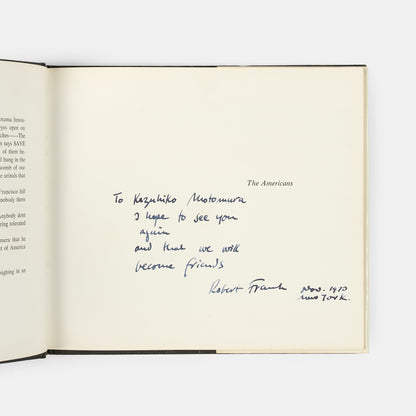 orama limou-
eyes open on
tches——The
n says SAVE
of them be-
l hung in the
womb of our
te urinals that
Francisco hill
nobody there
Anybody dont
eing tolerated
mura that he
et of America
sighing in us
The Americans
To Kazuhiko Motomura
I hope to see you
again
and that we will
become friends
Robert Frank Nov. 1970
New York.